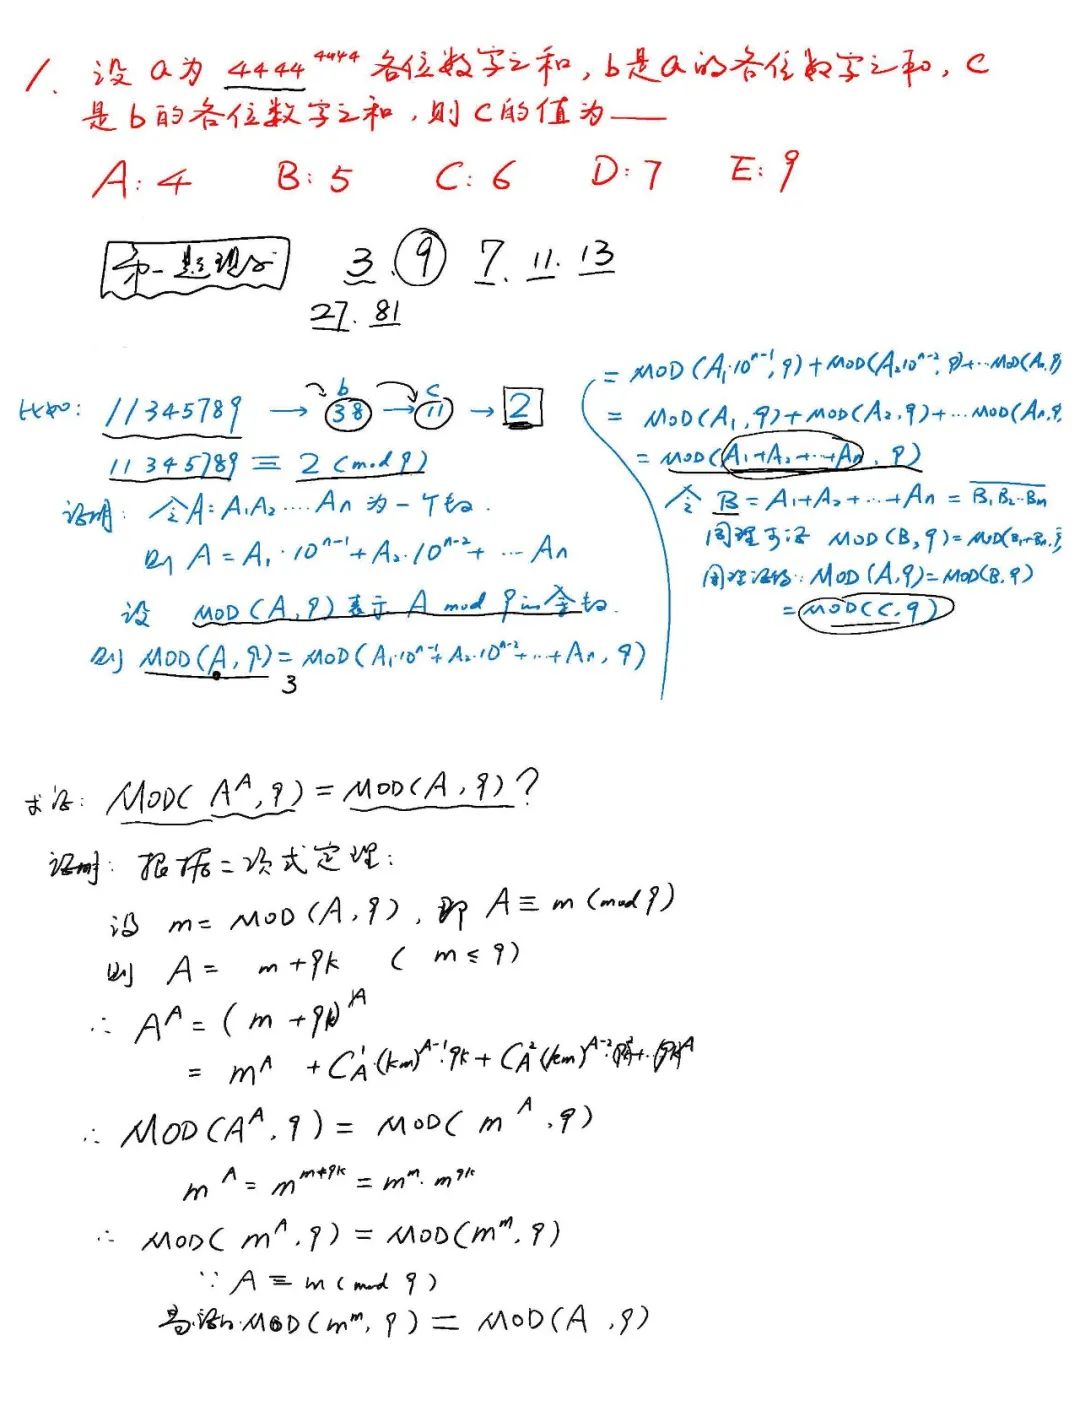 1. 设a为 4444^4444 各位数字之和，b是a的各位数字之和，c
是b的各位数字之和，则c的值为——
A: 4 B: 5 C: 6 D: 7 E: 9
第一题理论 3. 9 7. 11. 13
27. 81
比如: 11345789 → 38 → 11 → 2
b c
11345789 ≡ 2 (mod 9)
证明: 令A: A₁A₂....An 为一个数.
则 A = A₁·10^(n-1) + A₂·10^(n-2) + ... An
设 MOD(A, 9) 表示 A mod 9 的余数.
则 MOD(A, 9) = MOD(A₁·10^(n-1) + A₂·10^(n-2) + ... + An, 9)
3
= MOD(A₁·10^(n-1), 9) + MOD(A₂10^(n-2), 9) + ... MOD(An, 9)
= MOD(A₁, 9) + MOD(A₂, 9) + ... MOD(An, 9
= MOD(A₁+A₂+...+An, 9)
令 B = A₁+A₂+...+An = B₁B₂...Bm
同理可证 MOD(B, 9) = MOD(B₁+...Bm,
同理 MOD(A, 9) = MOD(B, 9)
= MOD(C, 9)
求证: MOD(A^A, 9) = MOD(A, 9)?
证明: 根据二项式定理:
设 m = MOD(A, 9), 即 A ≡ m (mod 9)
则 A = m + 9k ( m ≤ 9)
∴ A^A = (m + 9k)^A
= m^A + C_A^1·(km)^(A-1)·9k + C_A^2(km)^(A-2)
∴ MOD(A^A, 9) = MOD(m^A, 9)
m^A = m^(m+9k) = m^m · m^(9k)
∴ MOD(m^A, 9) = MOD(m^m, 9)
∵ A ≡ m (mod 9)
易证: MOD(m^m, 9) = MOD(A, 9)